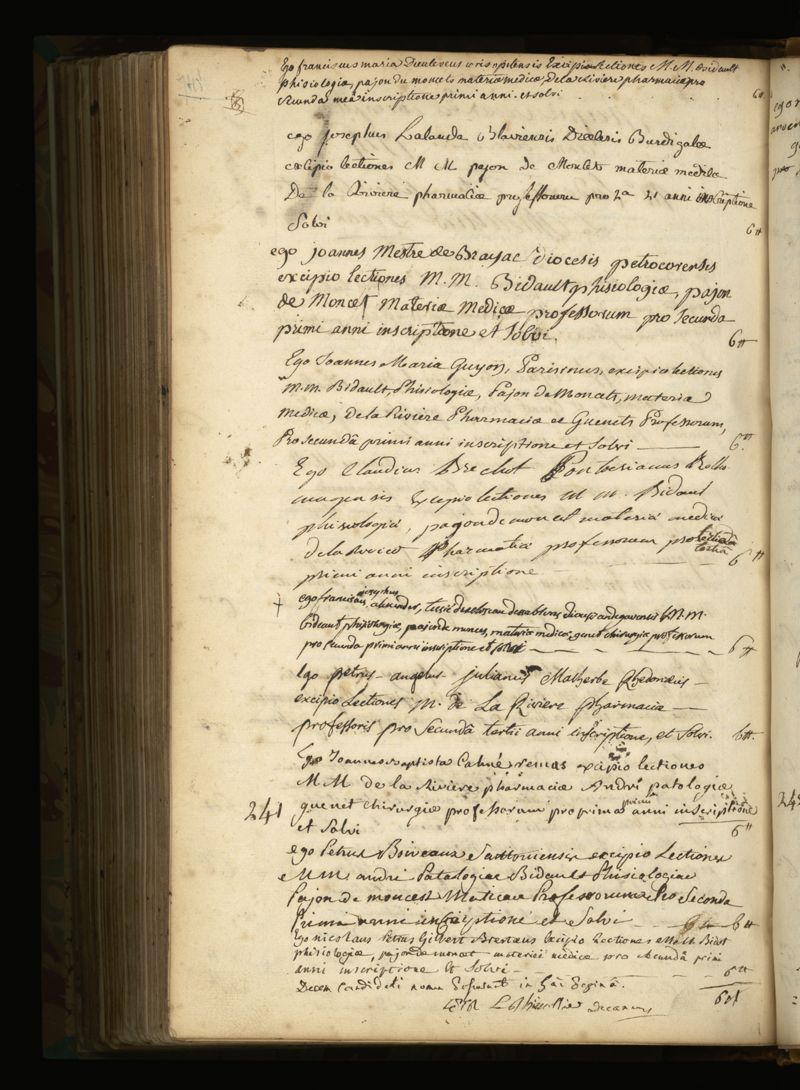 Ego franciscus maria Excipio Lectiones M.M. Bidault
phisiologiæ, pajon du moncets materiæ medicæ, De la Riviere pharmaciæ pro
secunda mea inscriptione primi anni. et solvi
6#
ego josephus Lalanda Blaviensis Diœcesis Burdigalæ
excipio lectiones M M pajon De Moncets materiæ medicæ
De la Riviere pharmaciæ professorum pro 2a 2i anni inscriptione
Solvi
6#
ego joannes Mestre de Brassac diocesis petrocorensis
excipio lectiones M.M. Bidault phisiologiæ, pajon
de Moncet Materiæ Medicæ professorum pro secunda
primi anni inscriptione et solvi.
6#
Ego Joannes Maria Guyon, Parisinus, excipio lectiones
M.M. Bidault, Phisiologiæ, Pajon de Moncets, materiæ
Medicæ, de la Riviere Pharmaciæ et Guenets Professorum,
Pro secundâ primi anni inscriptione et Solvi
6#
Ego Claudius Brechot
Excipio lectiones M M. Bidaut
phisiologiæ, pajon de moncet materiæ mediciæ
de la Riviere Pharmatiæ professorum pro
tertiâ
primi anni inscriptione
6#
ego franciscus dionysius alexander, diocesis andegavensis M.M.
bideaut phisiologiæ, pajon de monces, materiæ medicæ, guenet chirurgiæ professorum
pro secunda primi anni inscriptione et solvi
6#
Ego petrus angelus julianus Malherbe Rhedonæus
excipio Lectiones M. de La Riviere pharmaciæ
professoris pro secundâ tertii anni inscriptione, et Solvi.
6#.
Ego Joannes Baptista Calmé remus excipio lectiones
M M de la Riviere pharmaciæ Andri patologiæ
241
quenet chirurgiæ professorum pro prima primi anni inscriptione
et Solvi
6#
ego Petrus Boiveaux Santoniensis excipio Lectiones
M M andri Patalogiæ Bideault Phisiologiæ
Pajon de moncest Professorum Pro Seconda
Primi anni inscriptione et Solvi
6#
Ego nicolaus Petrus Gilbert Brestæus Excipio Lectiones M M Bidot
phisiologiæ, pajon de moncet materiei medicæ pro secundâ primi
anni inscriptione et Solvi
6#
Decem Candidati nomen
60#
Le Thieullier decanus